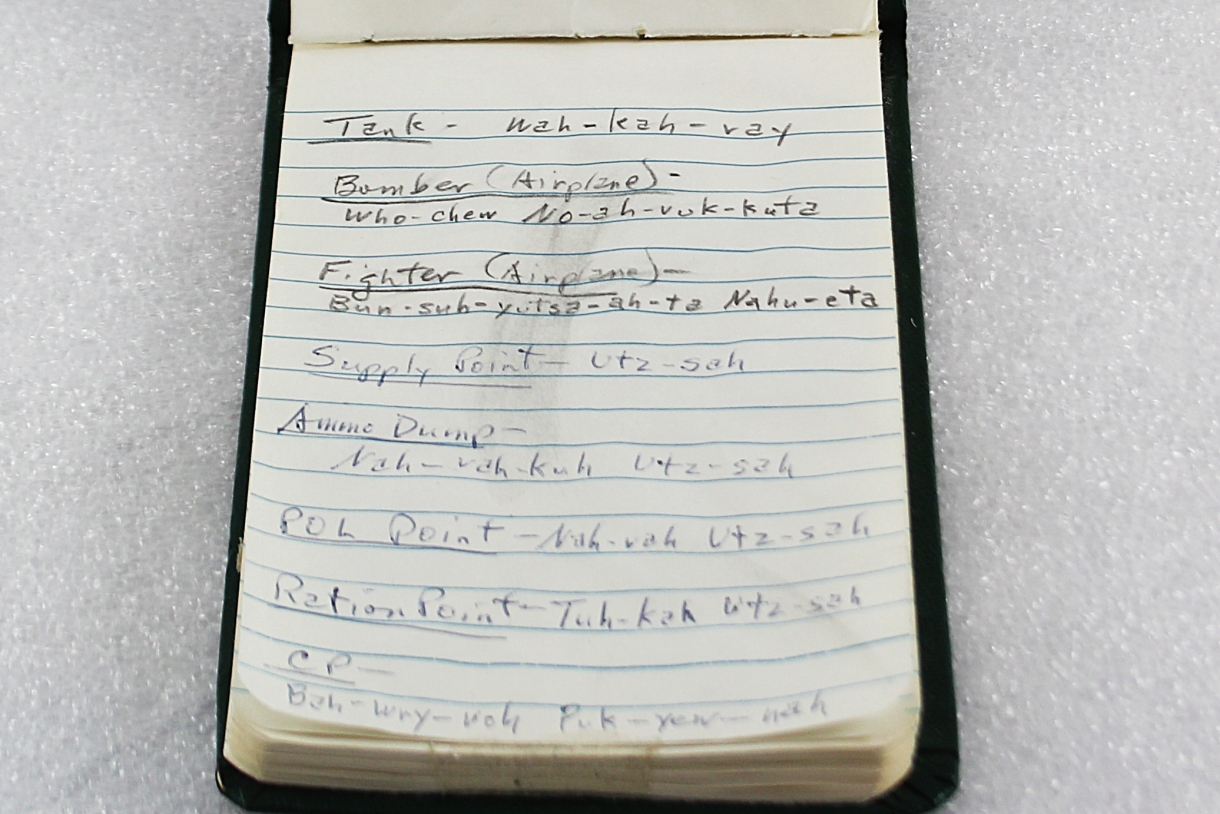 Tank - Wah-kah-ray
Bomber (Airplane) -
Who-chew No-ah-vok-kuta
Fighter (Airplane) -
Bun-suh-yutsa-ah-ta Nahu-eta
Supply Point - Utz-sah
Ammo Dump -
Nah-vah-kuh Utz-sah
POL Point - Nah-vah Utz-sah
Ration Point - Tuh-kah Utz-sah
CP -
Bah-wry-voh Puk-yew-nah